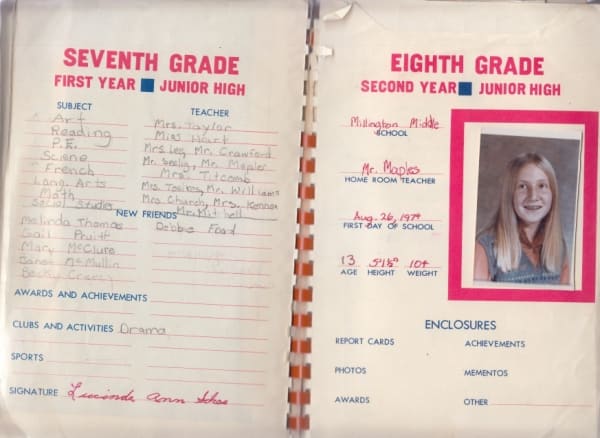 SEVENTH GRADE
FIRST YEAR JUNIOR HIGH
SUBJECT TEACHER
Art Mrs. Taylor
Reading Miss Hart
P.E. Mrs Leg, Mr. Crawford
Science Mr. Seelig, Mr. Mapler
French Mrs Titcomb
Lang. Arts Mrs. Mr. Williams
Math Mrs. Church, Mrs. Kennon
Social Studies Mr. Mitchell
NEW FRIENDS
Melinda Thomas Debbie Food
Gail Pruitt
Mary McClure
Janet McMullin
Becky
AWARDS AND ACHIEVEMENTS
CLUBS AND ACTIVITIES Drama
SPORTS
SIGNATURE Lucinda Ann
EIGHTH GRADE
SECOND YEAR JUNIOR HIGH
Millington Middle
SCHOOL
Mr. Maples
HOME ROOM TEACHER
Aug. 26, 1974
FIRST DAY OF SCHOOL
13 5'1½" 104
AGE HEIGHT WEIGHT
ENCLOSURES
REPORT CARDS ACHIEVEMENTS
PHOTOS MEMENTOS
AWARDS OTHER